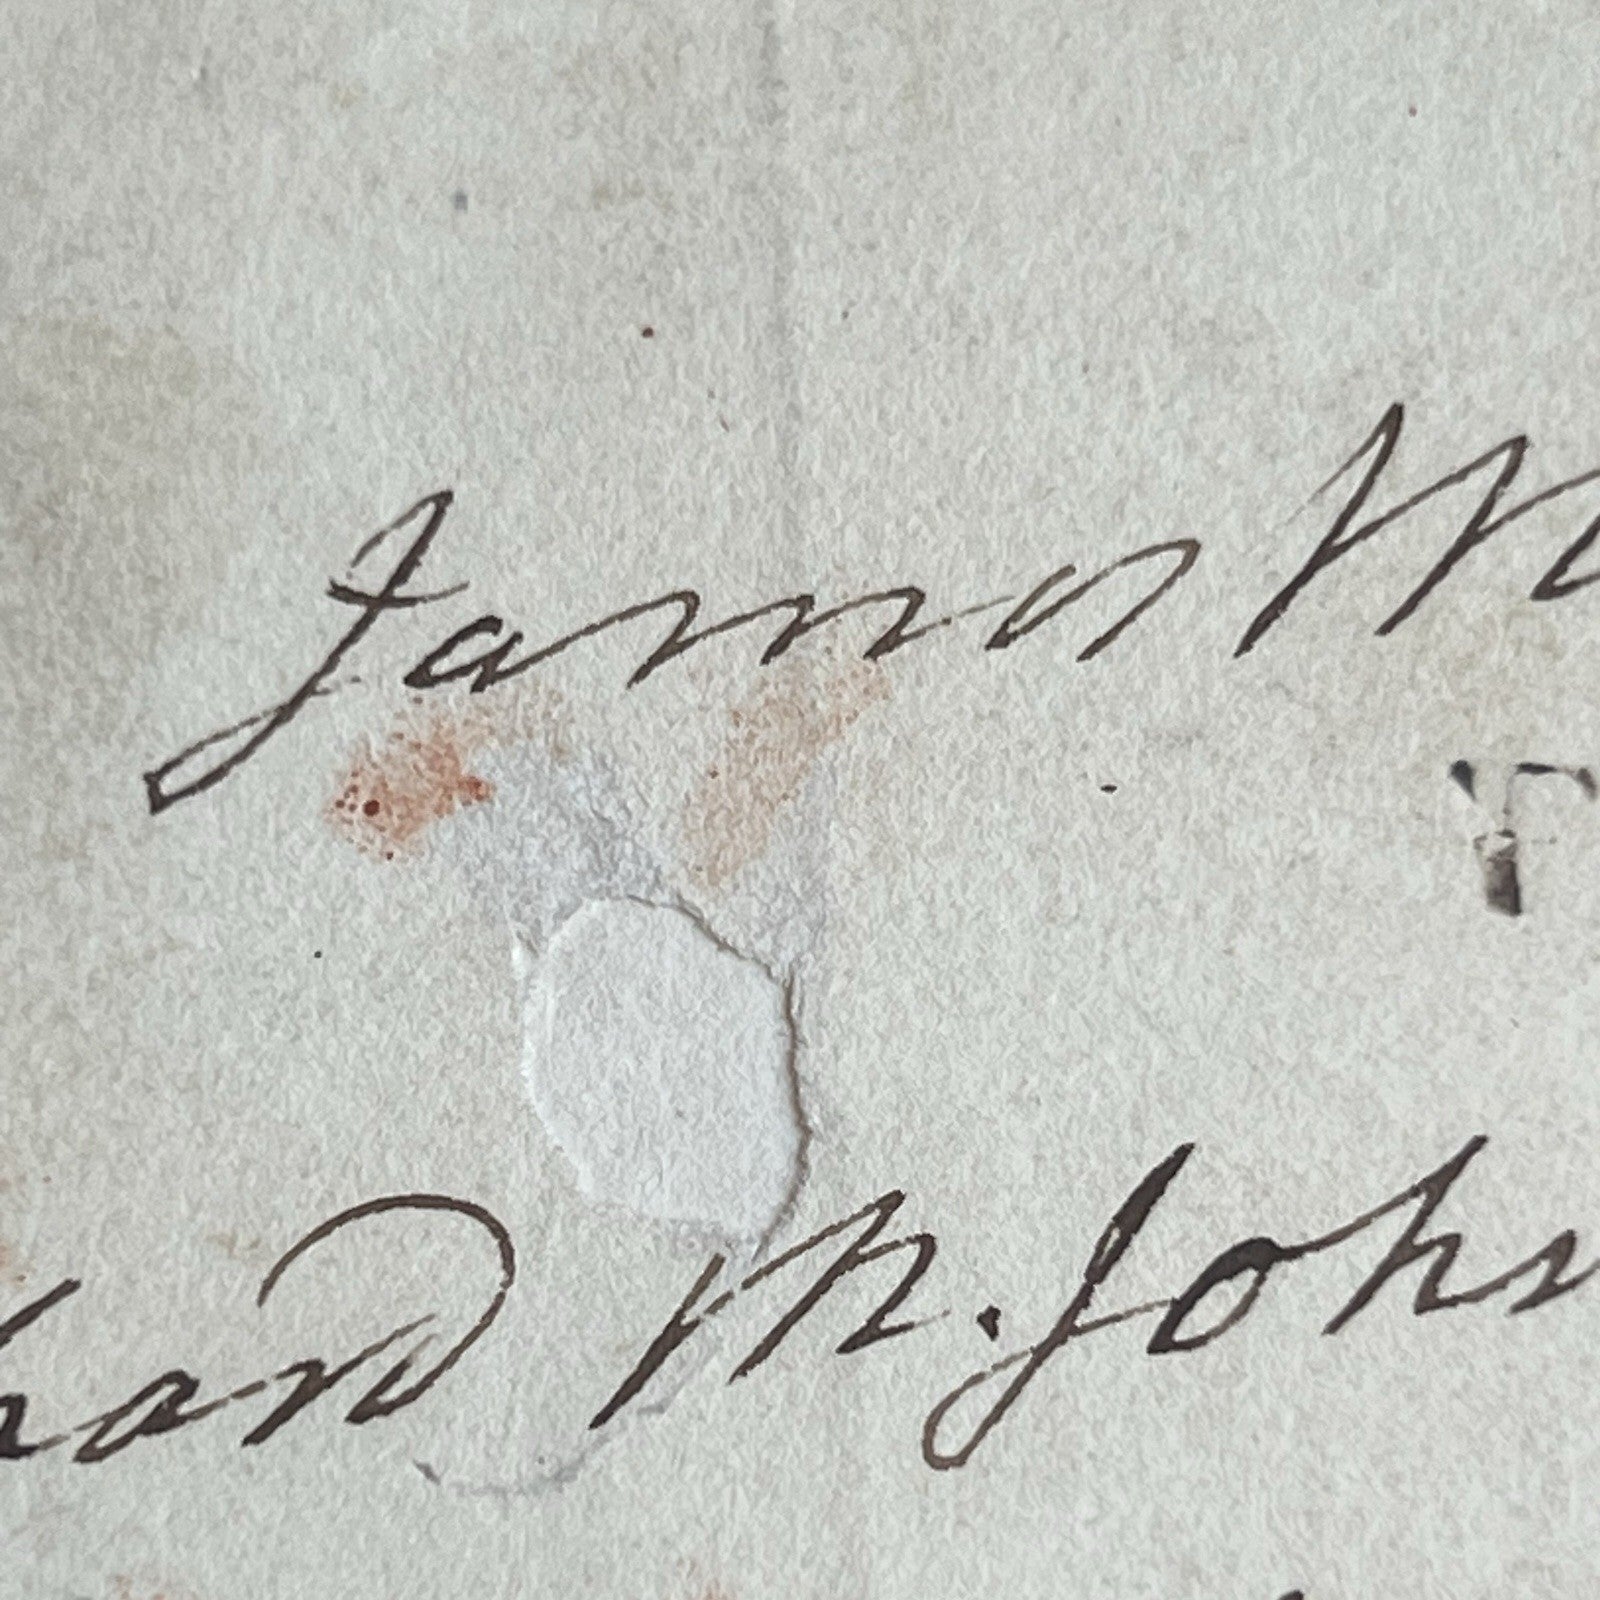 James M
hard M. John